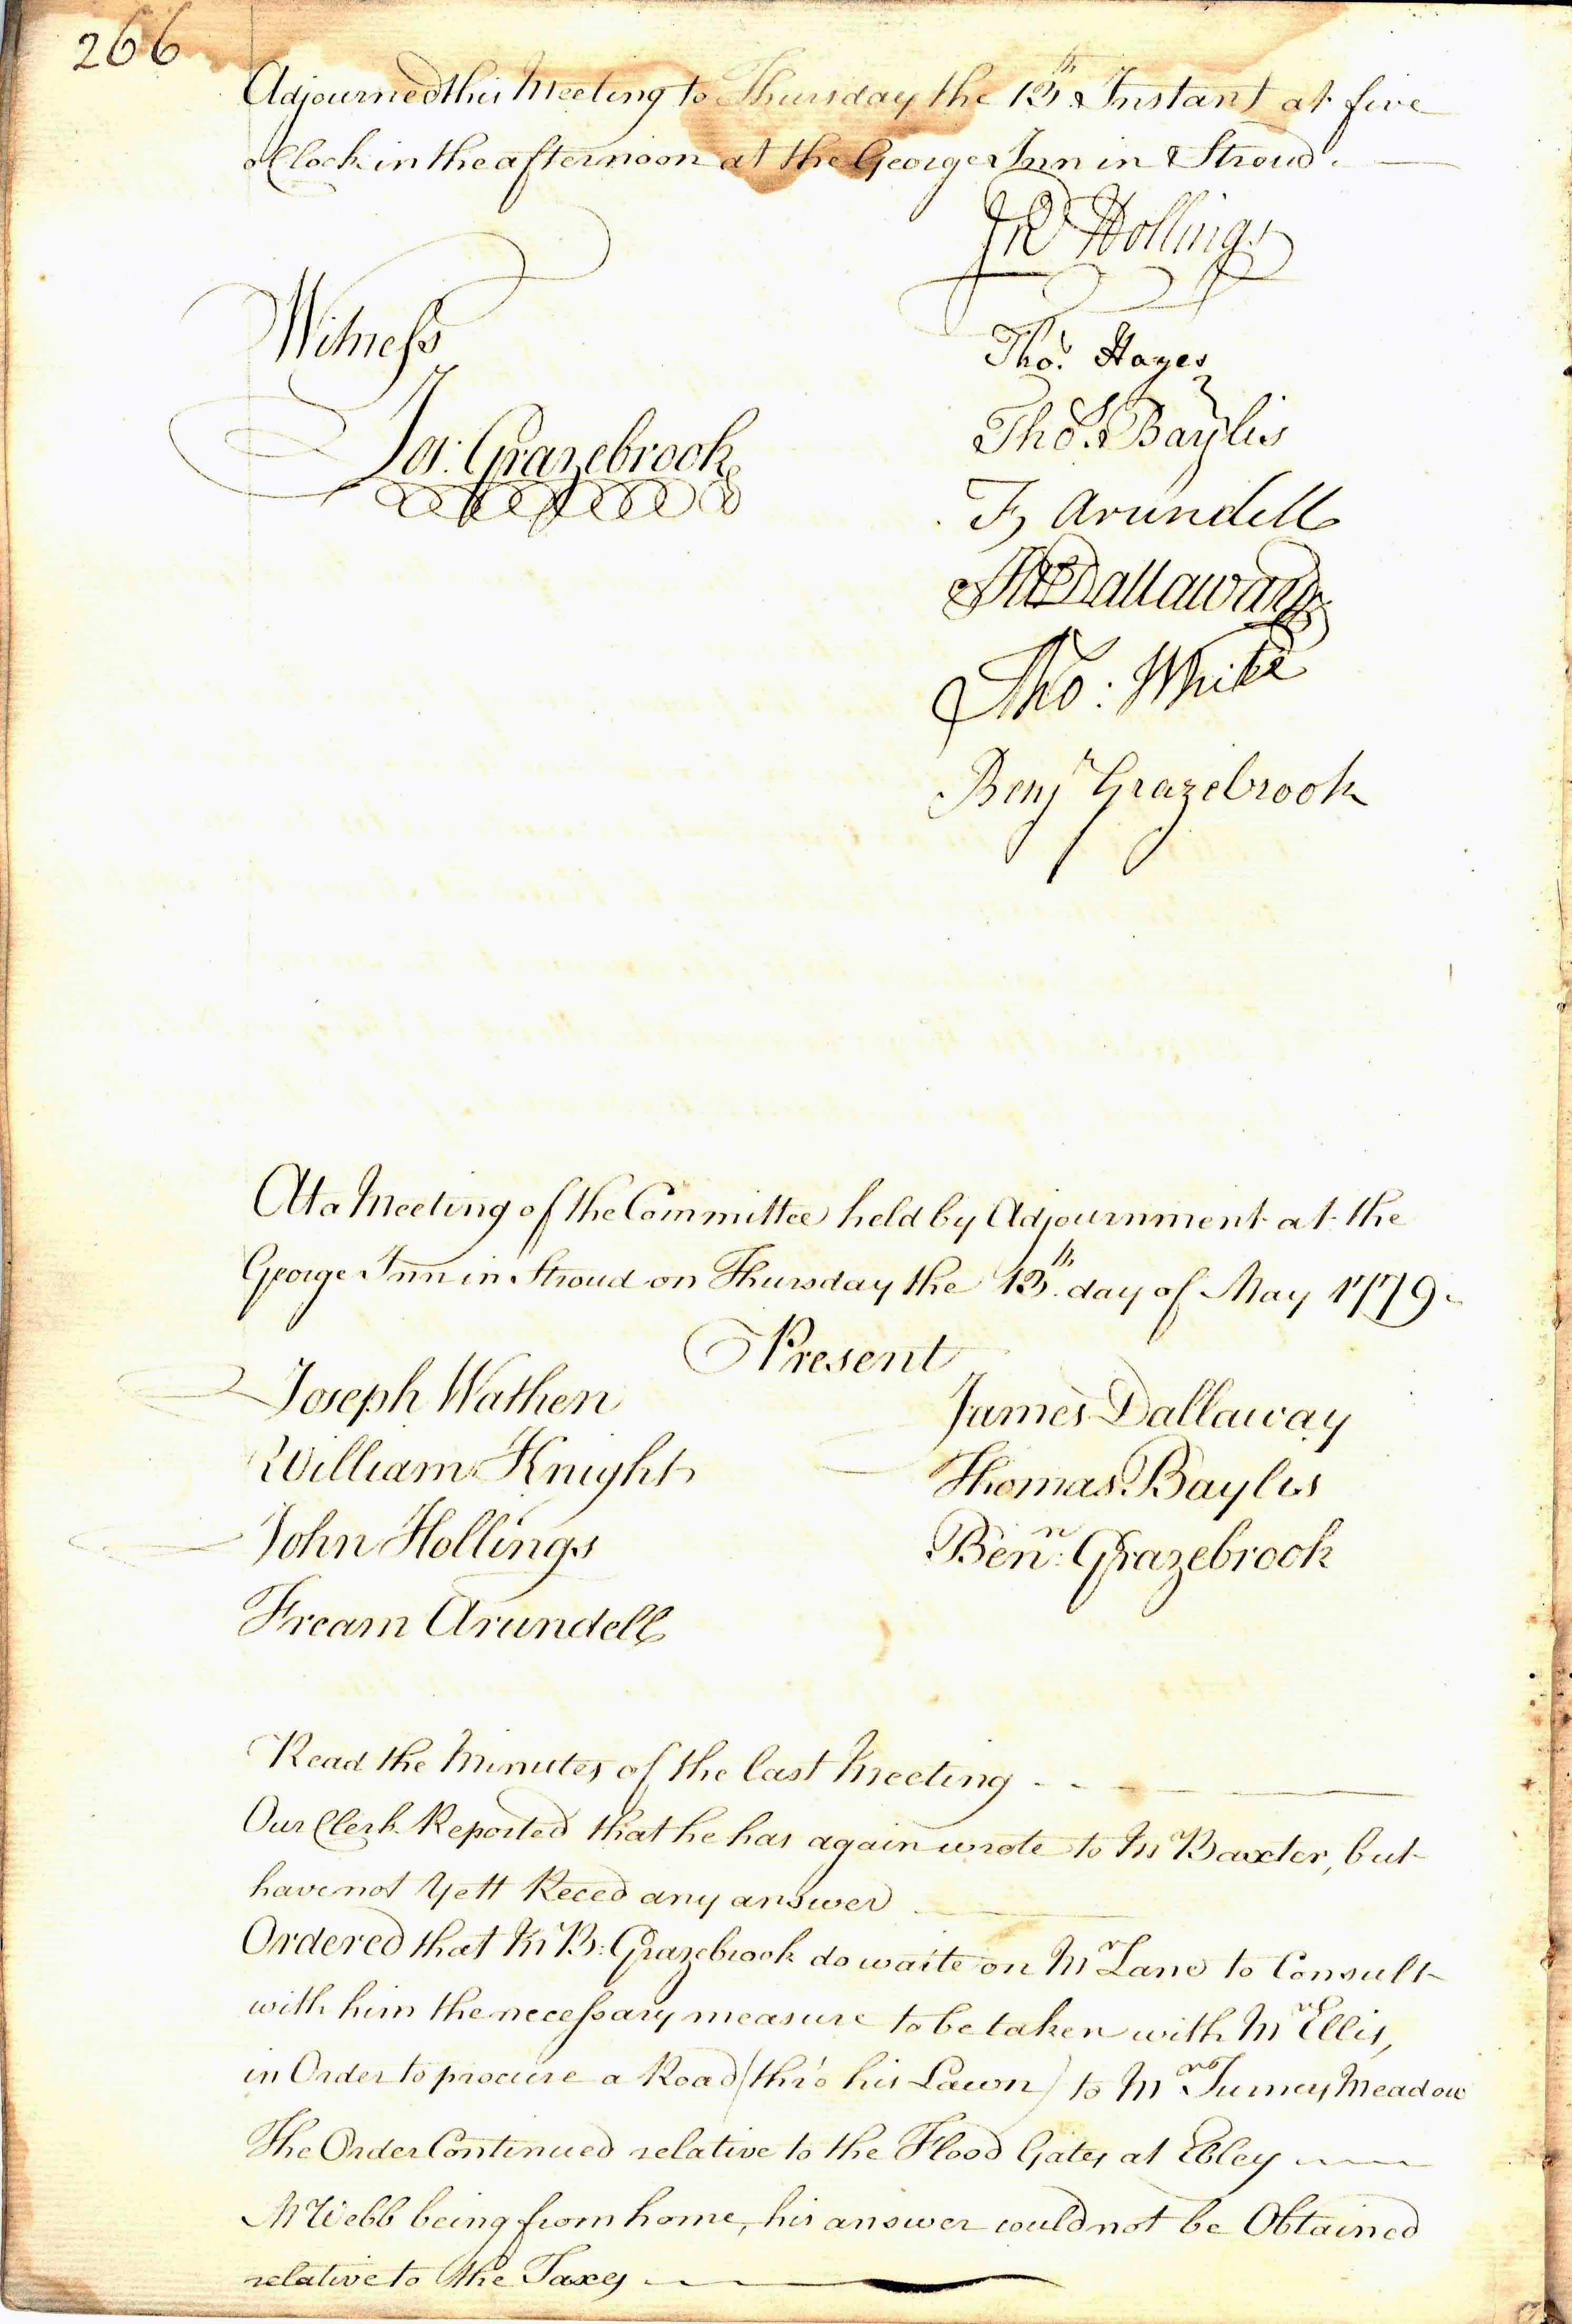 266
Adjourned this Meeting to Thursday the 13th Instant at five
oClock in the afternoon at the George Inn in Stroud.
Jno Hollings
Witness
Thos. Hayes
Jos: Grazebrook
Thos. Baylis
F, Arundell
Jas Dallaway
Tho: White
Benjn Grazebrook
At a Meeting of the Committee held by Adjournment at the
George Inn in Stroud on Thursday the 13th. day of May 1779.
Present
Joseph Wathen
James Dallaway
William Knight
Thomas Baylis
John Hollings
Benn: Grazebrook
Fream Arundell
Read the Minutes of the last Meeting
Our Clerk Reported that he has again wrote to Mr Baxter, but
have not Yett Reced any answer
Ordered that Mr B: Grazebrook do waite on Mr Lane to Consult
with him the necessary measure to be taken with Mr Ellis,
in Order to procure a Road (thro' his Lawn) to Mrs Turneys Meadow
The Order Continued relative to the Flood Gates at Ebley
Mr Webb being from home, his answer could not be Obtained
relative to the Taxes